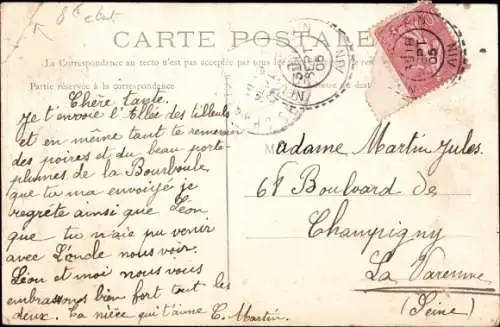 8e ebert
CARTE POSTALE
La Correspondance au recto n'est pas acceptée par tous les
Partie réservée à la correspondance
de dest
Chère tante.
Je t'envoie l'Ellée des tilleuls
et en même tant te remercier
des poires et du beau porte-
plumes de la Bourboule
que tu ma envoyé je
regrète ainsi que Léon
que tu n'aie pu venir
avec L'oncle nous voir.
Léon et moi nous vous
embrassons bien fort tout les
deux. La nièce qui t'aime C. Martin.
Madame Martin Jules.
61 Boulvard de
Champigny
La Varenne
(Seine)
AIN
SEPT
05
AIN